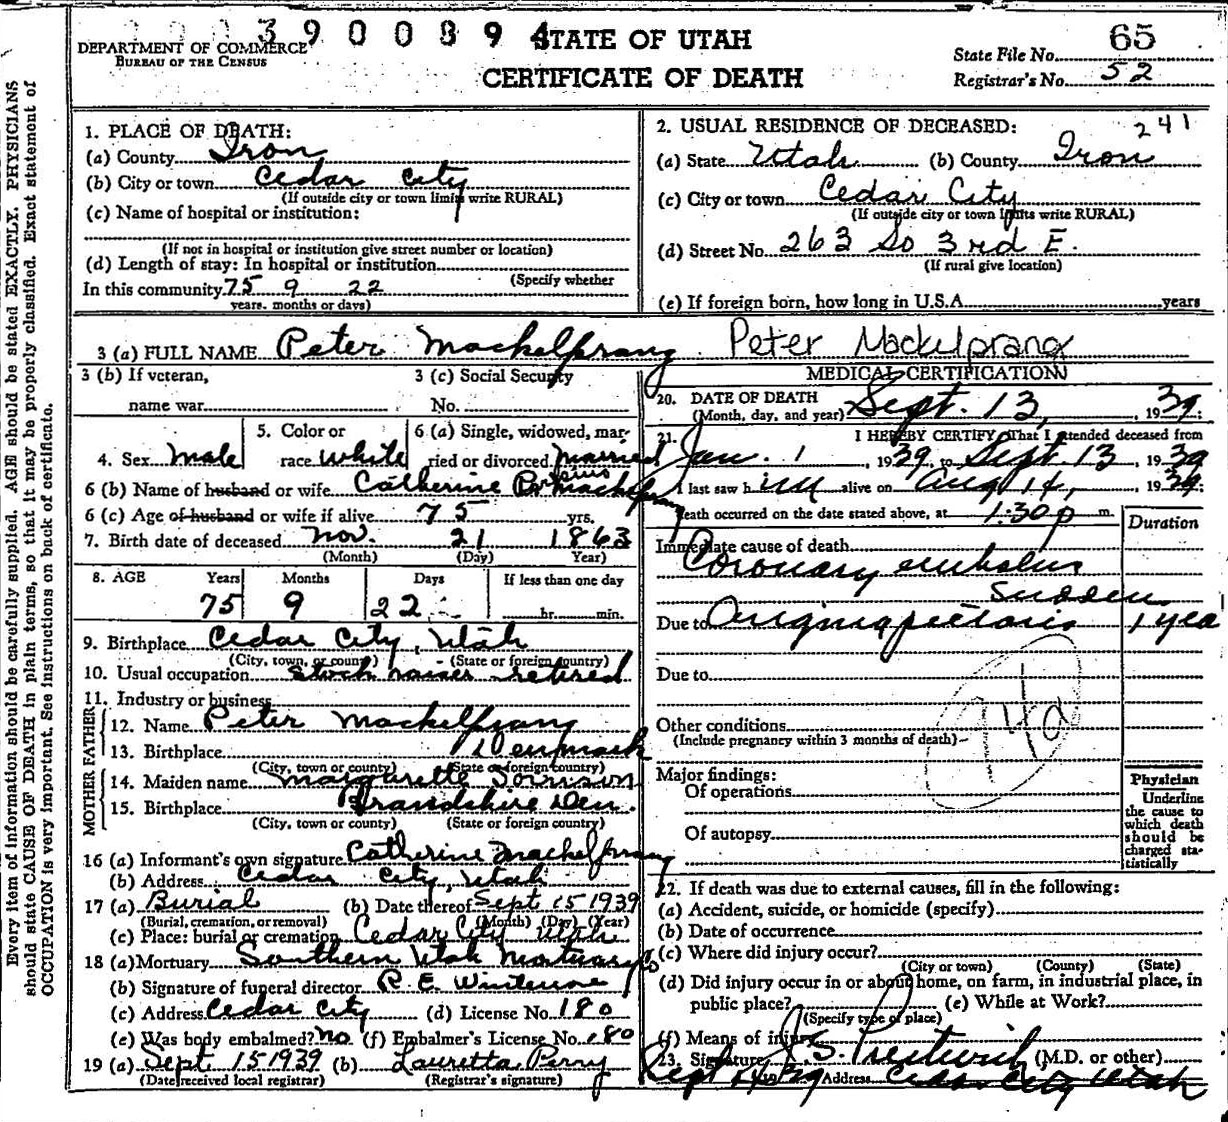 3 9 0 0 8 9 4
DEPARTMENT OF COMMERCE
BUREAU OF THE CENSUS
STATE OF UTAH
CERTIFICATE OF DEATH
State File No. 65
Registrar's No. 52
Every item of information should be carefully supplied. AGE should be stated EXACTLY. PHYSICIANS
should state CAUSE OF DEATH in plain terms, so that it may be properly classified. Exact statement of
OCCUPATION is very important. See instructions on back of certificate.
1. PLACE OF DEATH:
(a) County Iron
(b) City or town Cedar City
(If outside city or town limits write RURAL)
(c) Name of hospital or institution:
(If not in hospital or institution give street number or location)
(d) Length of stay: In hospital or institution
(Specify whether
In this community 75 9 22
years, months or days)
2. USUAL RESIDENCE OF DECEASED: 241
(a) State Utah (b) County Iron
(c) City or town Cedar City
(If outside city or town limits write RURAL)
(d) Street No. 263 So 3rd E.
(If rural give location)
(e) If foreign born, how long in U.S.A. years
3 (a) FULL NAME Peter Mackelprang Peter Mackelprang
3 (b) If veteran,
name war
3 (c) Social Security
No.
4. Sex male
5. Color or
race white
6 (a) Single, widowed, mar-
ried or divorced married
6 (b) Name of husband or wife Catherine Mackelprang
6 (c) Age of husband or wife if alive 75 yrs.
7. Birth date of deceased Nov. 21 1863
(Month) (Day) Year)
8. AGE Years Months Days If less than one day
75 9 22 hr. min.
9. Birthplace Cedar City, Utah
(City, town, or county) (State or foreign country)
10. Usual occupation stock raiser - retired
11. Industry or business
FATHER
12. Name Peter Mackelprang
13. Birthplace Denmark
(City, town or county) (State or foreign country)
MOTHER
14. Maiden name Margarette
15. Birthplace Den.
(City, town or county) (State or foreign country)
16 (a) Informant's own signature Catherine Mackelprang
(b) Address Cedar City, Utah
17 (a) Burial (b) Date thereof Sept 15 1939
(Burial, cremation, or removal) (Month) (Day) (Year)
(c) Place: burial or cremation Cedar City Utah
18 (a) Mortuary Southern Utah Mortuary Co
(b) Signature of funeral director R. E.
(c) Address Cedar City (d) License No. 180
(e) Was body embalmed? no (f) Embalmer's License No. 180
19 (a) Sept 15 1939 (b) Lauretta Perry
(Date received local registrar) (Registrar's signature)
MEDICAL CERTIFICATION
20. DATE OF DEATH
(Month, day, and year) Sept. 13, 1939
21. I HEREBY CERTIFY, That I attended deceased from
Jan. 1, 1939, to Sept 13, 1939
I last saw him alive on Aug 14, 1939
death occurred on the date stated above, at 1:30 p m.
Duration
Immediate cause of death
Coronary embolus
sudden
Due to Angina pectoris 1 yea
Due to
94a
Other conditions
(Include pregnancy within 3 months of death)
Major findings:
Of operations
Of autopsy
Physician
Underline
the cause to
which death
should be
charged sta-
tistically
22. If death was due to external causes, fill in the following:
(a) Accident, suicide, or homicide (specify)
(b) Date of occurrence
(c) Where did injury occur?
(City or town) (County) (State)
(d) Did injury occur in or about home, on farm, in industrial place, in
public place? (e) While at Work?
(Specify type of place)
(f) Means of injury
23. Signature Prestwich (M.D. or other)
Sept 14/39 Address Cedar City Utah